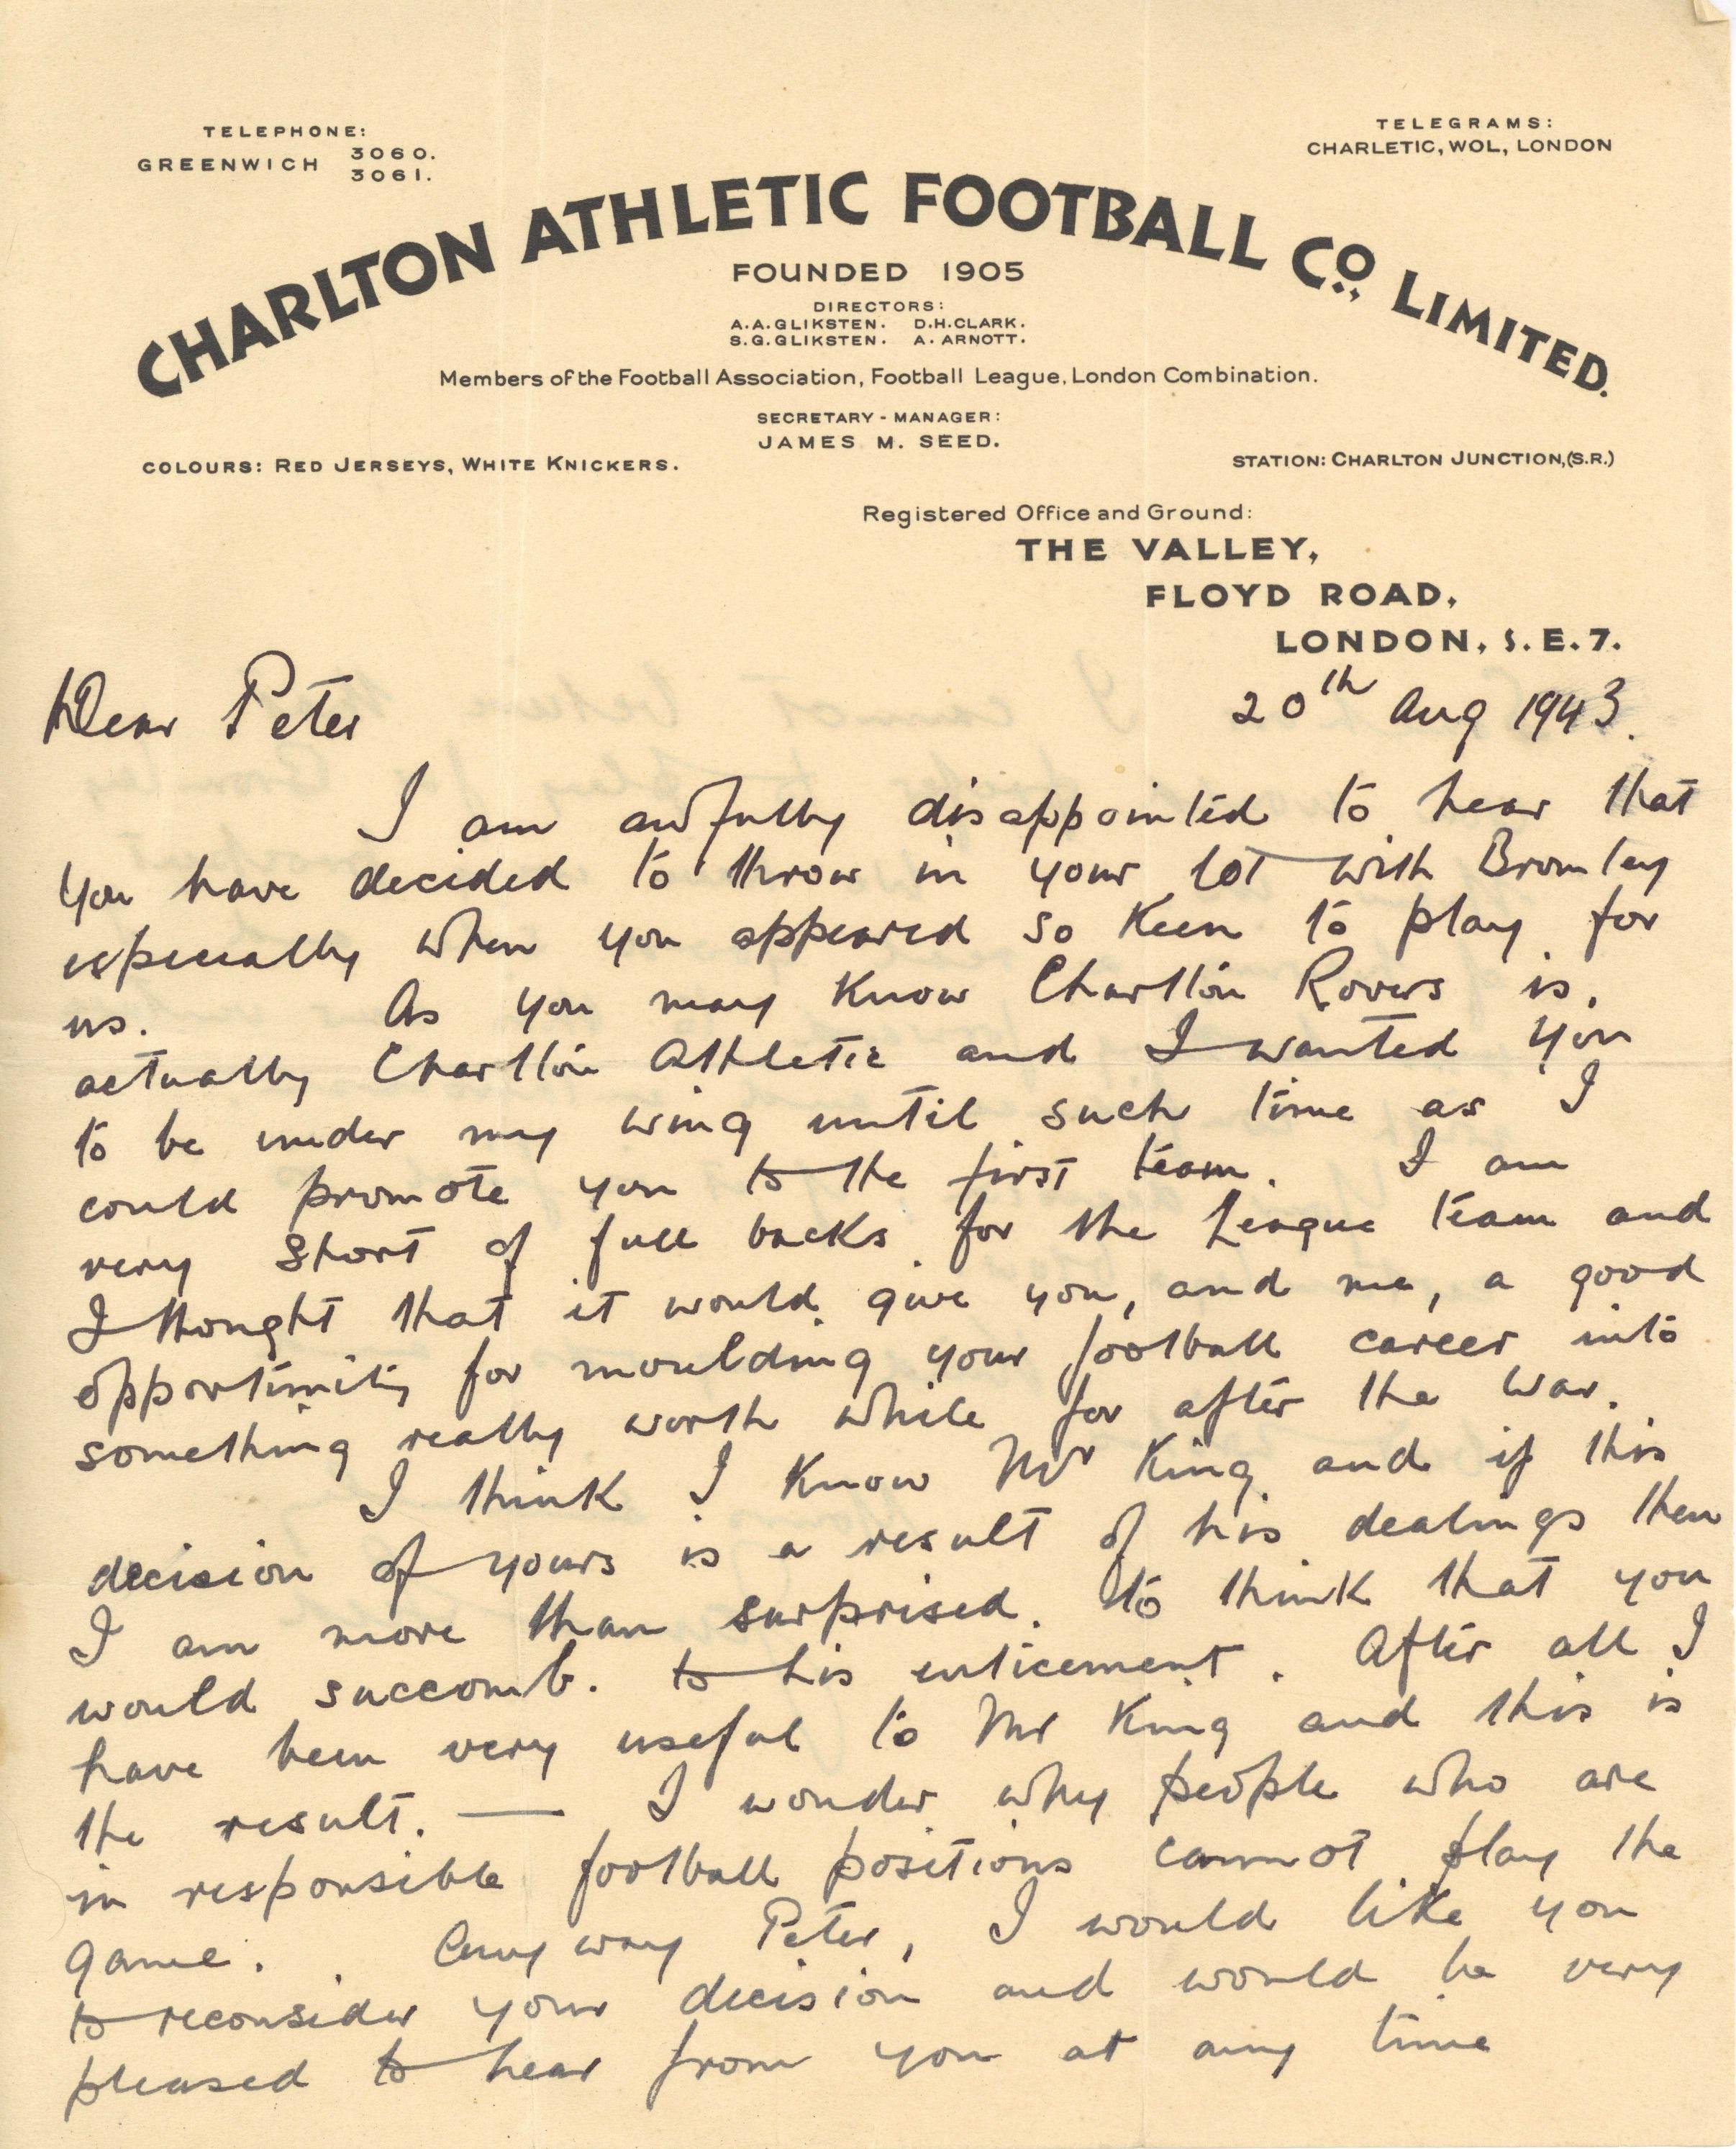 TELEPHONE:
GREENWICH 3060.
3061.
TELEGRAMS:
CHARLETIC, WOL, LONDON
CHARLTON ATHLETIC FOOTBALL Co., LIMITED.
FOUNDED 1905
DIRECTORS:
A.A.GLIKSTEN. D.H.CLARK.
S.G.GLIKSTEN. A. ARNOTT.
Members of the Football Association, Football League, London Combination.
SECRETARY - MANAGER:
JAMES M. SEED.
COLOURS: RED JERSEYS, WHITE KNICKERS.
STATION: CHARLTON JUNCTION,(S.R.)
Registered Office and Ground:
THE VALLEY,
FLOYD ROAD,
LONDON, S.E.7.
20th Aug 1943.
Dear Peter
I am awfully disappointed to hear that
you have decided to throw in your lot with Bromley
especially when you appeared so keen to play for
us. As you may know Charlton Rovers is,
actually Charlton Athletic and I wanted you
to be under my wing until such time as I
could promote you to the first team. I am
very short of full backs for the League team and
I thought that it would give you, and me, a good
opportunity for moulding your football career into
something really worth while for after the war.
I think I know Mr King and if this
decision of yours is a result of his dealings then
I am more than surprised. to think that you
would succomb. to his enticement. After all I
have been very useful to Mr King and this is
the result. — I wonder why people who are
in responsible football positions cannot play the
game. Anyway Peter, I would like you
to reconsider your decision and would be very
pleased to hear from you at any time